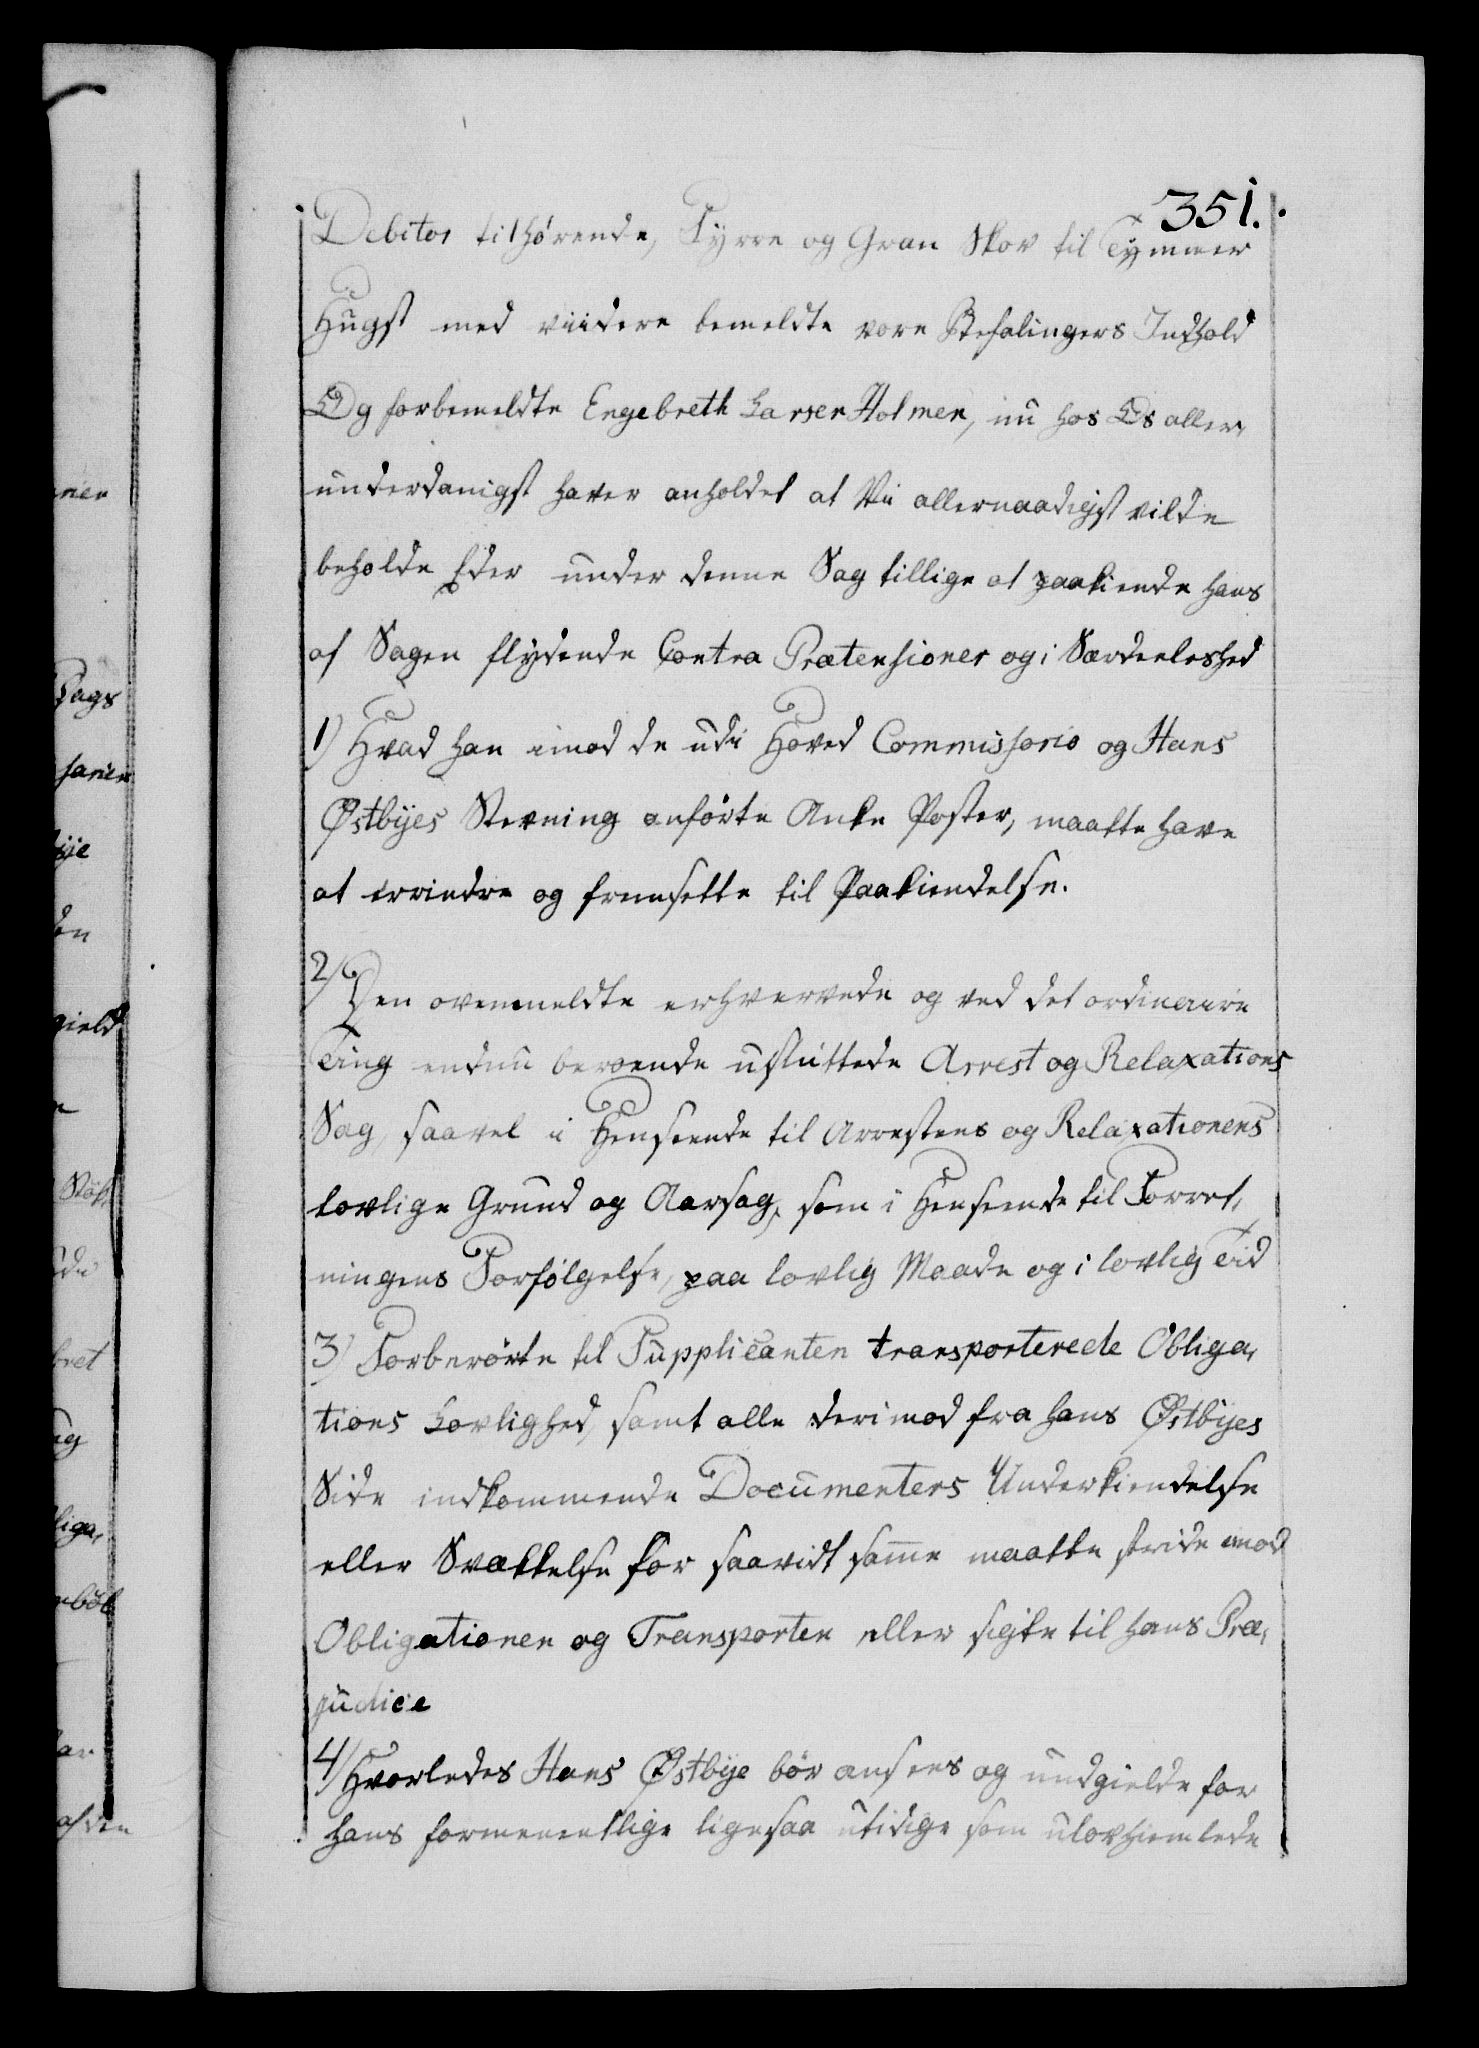 351.
Debitor tilhørende, Fyrre og Gran Skov til Tymmer
Hugst med viidere bemeldte vore Befalingers Indhold
Og forbemeldte Engebreth Larsen Holmen, nu hos Os aller,
underdanigst haver anholdet at Vii allernaadigst vilde
beholde Eder under denne Sag tillige at paakiende hans
af Sagen flydende Contra Prætensioner og i Særdeeleshed
1) Hvad han imod de udi Hoved Commissorio og Hans
Østbyes Stevning anførte Anke Poster, maatte have
at errindre og fremsette til Paakiendelse.
2) Den ovenmeldte erhvervede og ved det ordinaire
Ting endnu beroende usluttede Arrest og Relaxations
Sag, saavel i Henseende til Arrestens og Relaxationens
lovlige Grund og Aarsag, som i Henseende til Forret,
ningens Forfølgelse, paa lovlig Maade og i lovlig Tid
3) Forberørte til Supplicanten transporterede Obliga,
tions Lovlighed, samt alle derimod fra Hans Østbyes
Side indkommende Documenters Underkiendelse
eller Svækkelse for saavidt samme maatte stride imod
Obligationen og Transporten eller sigte til hans Præ,
judice
4) Hvorledes Hans Østbye bør ansees og undgielde for
hans formeenentlige ligesaa utidige som ulovhiemlede